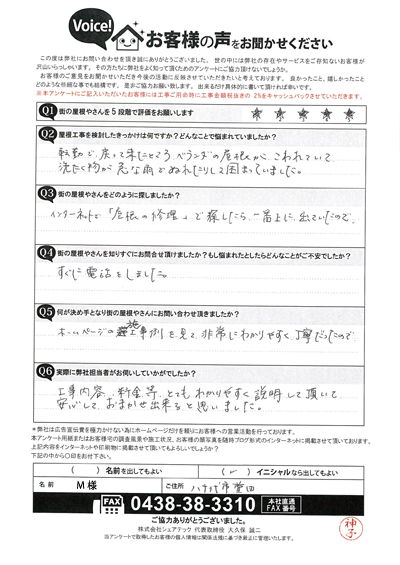 Voice!
お客様の声をお聞かせください
この度は弊社にお問い合わせを頂き誠にありがとうございました。世の中には弊社の存在やサービスをご存知ないお客様が
沢山いらっしゃいます。その方たちに弊社をよく知って頂くためのアンケートにご協力頂けないでしょうか。
お客様のご意見をお聞かせいただき今後の活動に反映させていただきたいと考えております。良かったこと、嬉しかったこと
どのような些細な事でも結構です。是非ご協力お願い致します。出来るだけ具体的に書いて頂ければ幸いです。
※本アンケートにご記入いただいたお客様には工事ご用命時に工事金額税抜きの 2%をキャッシュバックさせていただきます。
Q1 街の屋根やさんを5段階で評価をお願いします
★ ★ ★ ★ ★
Q2 屋根工事を検討したきっかけは何ですか?どんなことで悩まれていましたか?
転勤で、戻って来たところベランダの屋根が、こわれていて
洗たく物が急な雨でぬれたりして困まっていました。
Q3 街の屋根やさんをどのように探しましたか?
インターネットで「屋根の修理」で探したら、一番上に出ていたので、
Q4 街の屋根やさんを知りすぐにお問合せ頂けましたか?もし悩まれたとしたらどんなことがご不安でしたか?
すぐに電話をしました。
Q5 何が決め手となり街の屋根やさんにお問い合わせ頂きましたか?
ホームページの施工事例を見て、非常にわかりやすく、丁寧だったので
Q6 実際に弊社担当者がお伺いしていかがでしたか?
工事内容、料金等、とてもわかりやすく説明して頂いて
安心して、おまかせ出来ると思いました。
※弊社は広告宣伝費を極力かけない為にホームページだけを頼りにお客様への営業活動を行っております。
本アンケート用紙またはお客様宅の調査風景や施工状況、お客様の顔写真を随時ブログ形式のインターネットに掲載させて頂いております。
上記内容をインターネットや印刷物に掲載させて頂いてもよろしいでしょうか?
下記の中から〇印をお出せ下さい。
( ) 名前を出してもよい ( ✓ ) イニシャルなら出してもよい
名前 M様 ご住所
FAX 0438-38-3310 本社直通 FAX番号
ご協力ありがとうございました。
株式会社シェアテック 代表取締役 大久保 誠二
当アンケートで取得したお客様の個人情報は関係法規に基づき厳正に管理いたします。